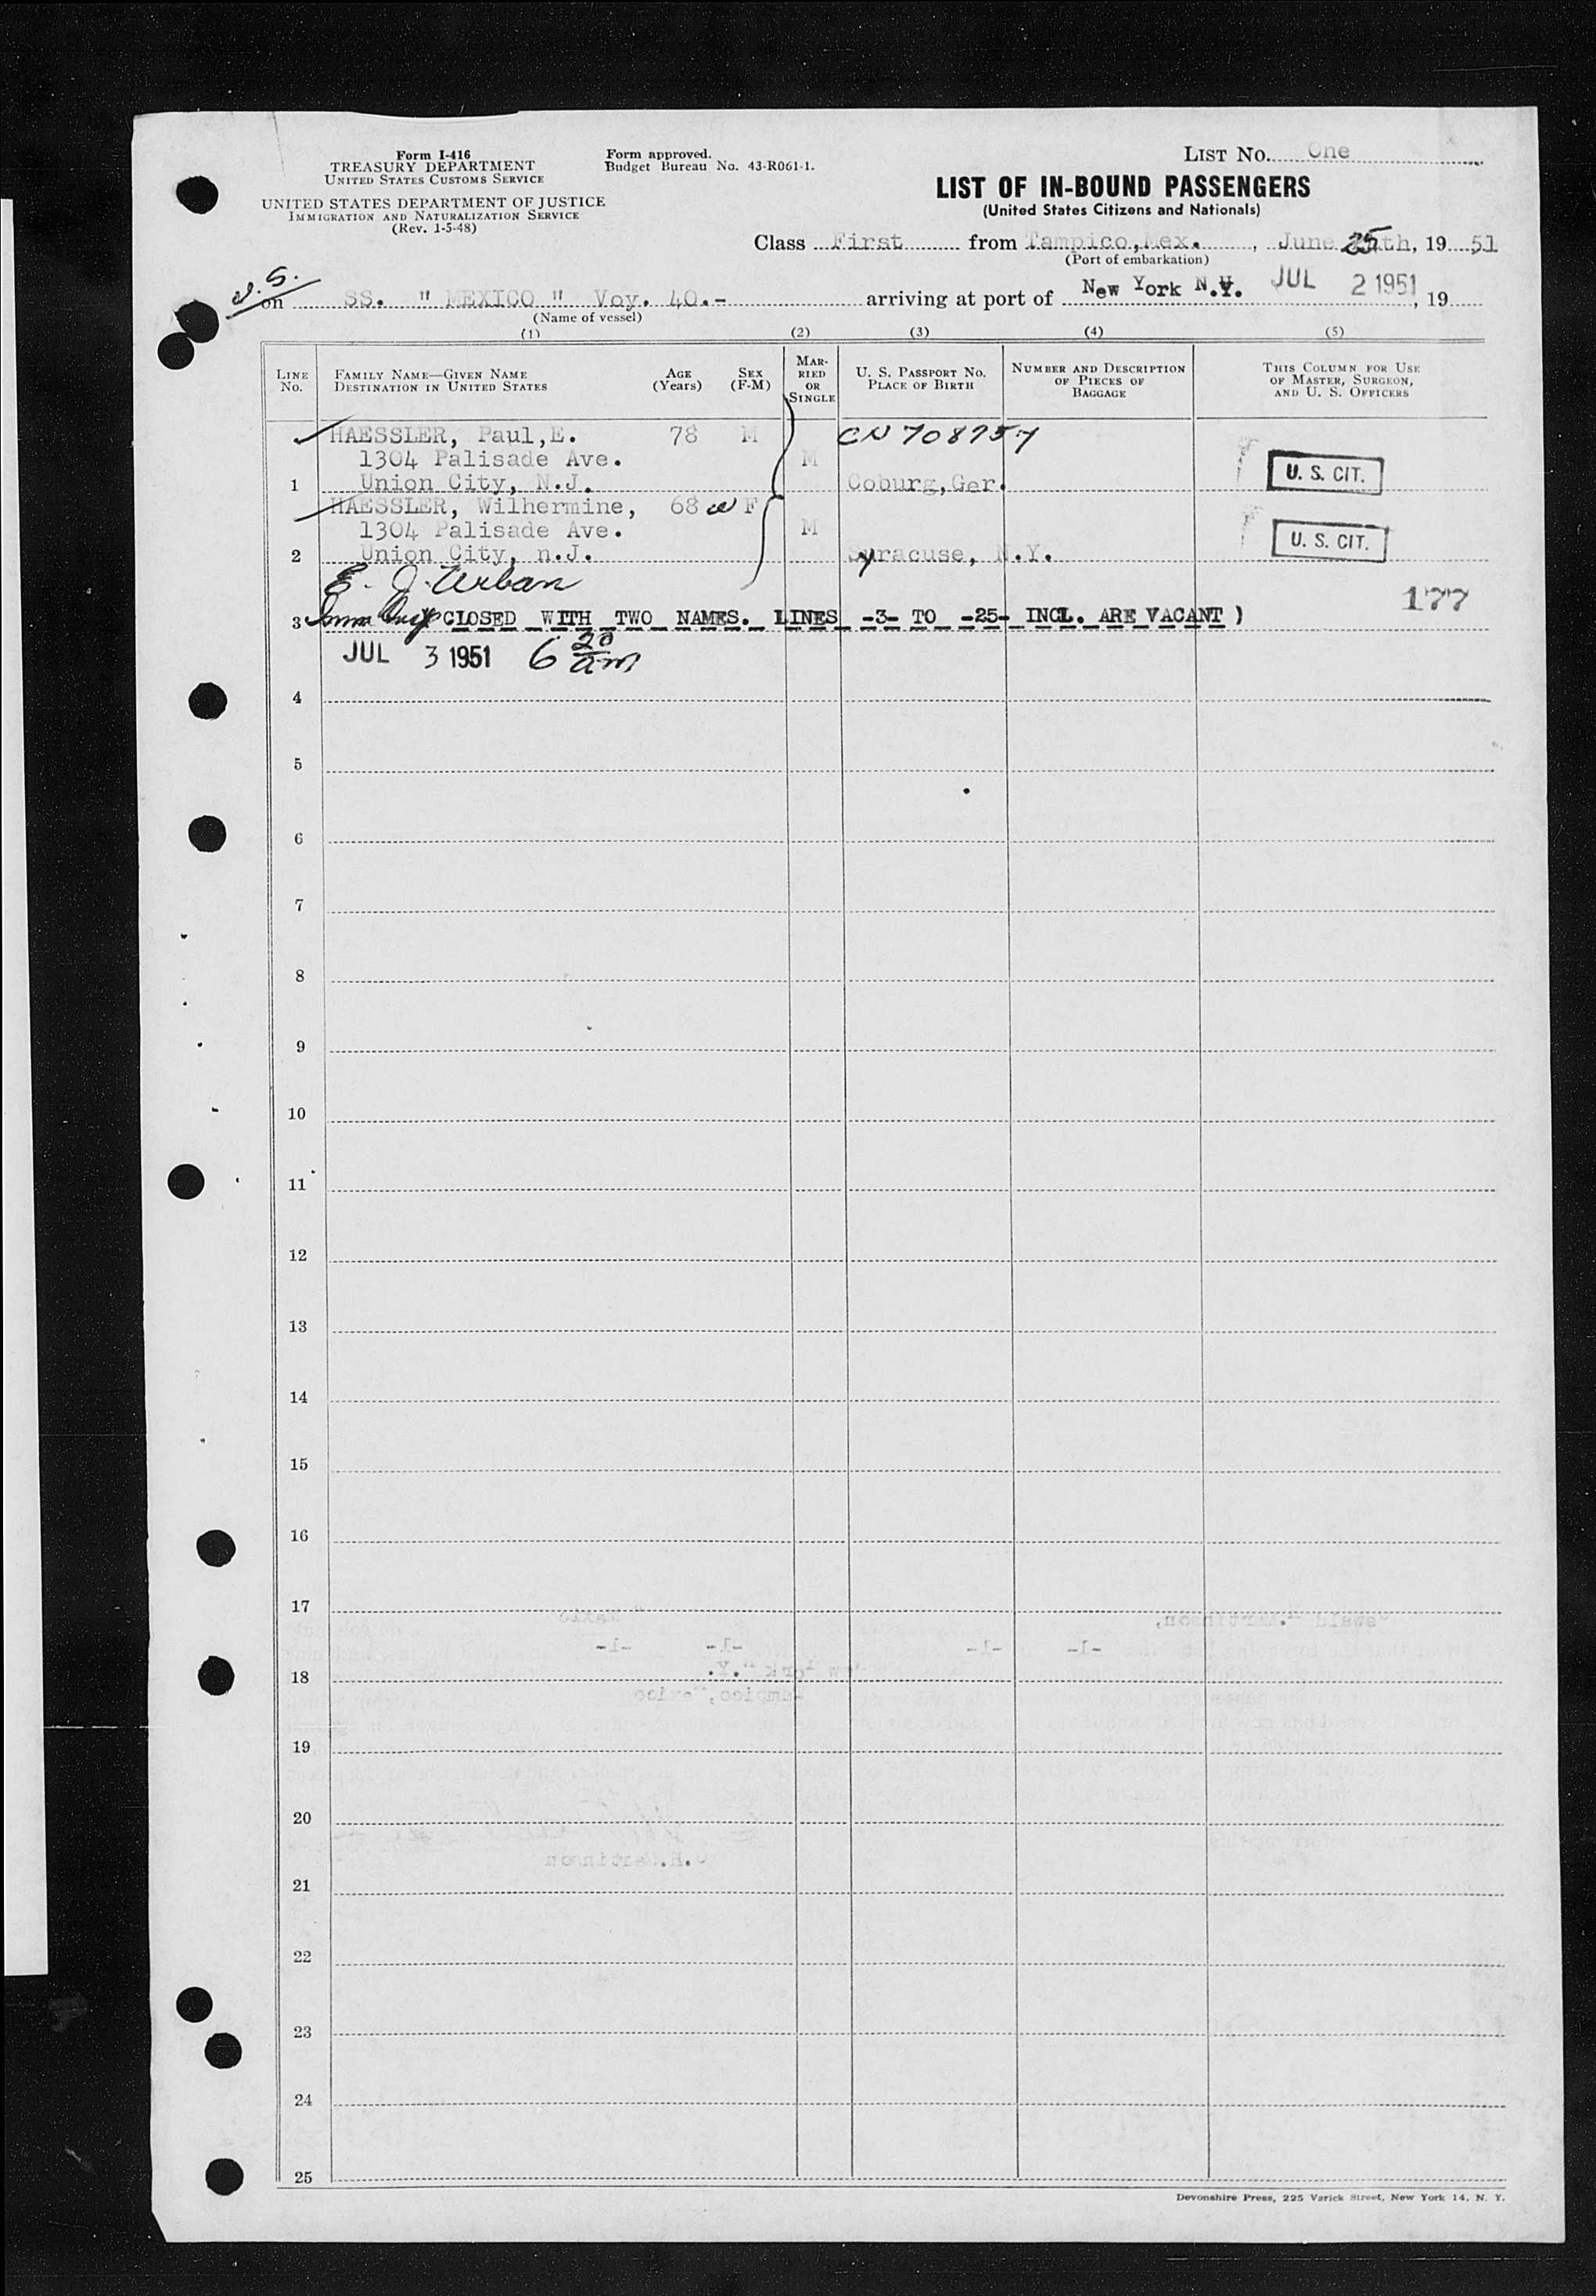 Form I-416
TREASURY DEPARTMENT
UNITED STATES CUSTOMS SERVICE
UNITED STATES DEPARTMENT OF JUSTICE
IMMIGRATION AND NATURALIZATION SERVICE
(Rev. 1-5-48)
Form approved.
Budget Bureau No. 43-R061-1.
LIST NO. One
LIST OF IN-BOUND PASSENGERS
(United States Citizens and Nationals)
Class First from Tampico, Mex., June 25th, 1951
(Port of embarkation)
on SS. " MEXICO " Voy. 40.- arriving at port of New York N.Y. JUL 2 1951, 19
(Name of vessel)
(1) (2) (3) (4) (5)
LINE NO.
FAMILY NAME—GIVEN NAME
DESTINATION IN UNITED STATES
AGE (Years)
SEX (F-M)
MARRIED OR SINGLE
U. S. PASSPORT NO.
PLACE OF BIRTH
NUMBER AND DESCRIPTION OF PIECES OF BAGGAGE
THIS COLUMN FOR USE OF MASTER, SURGEON, AND U. S. OFFICERS
HAESSLER, Paul,E. 78 M
1304 Palisade Ave. M
1 Union City, N.J. Coburg,Ger. U. S. CIT.
HAESSLER, Wilhermine, 68 F
1304 Palisade Ave. M
2 Union City, n.J. Syracuse, N.Y. U. S. CIT.
E. J. Urban
177
3 CLOSED WITH TWO NAMES. LINES -3- TO -25- INCL. ARE VACANT )
JUL 3 1951 6 20 am
4
5
6
7
8
9
10
11
12
13
14
15
16
17
18
19
20
21
22
23
24
25
Devonshire Press, 225 Varick Street, New York 14, N. Y.